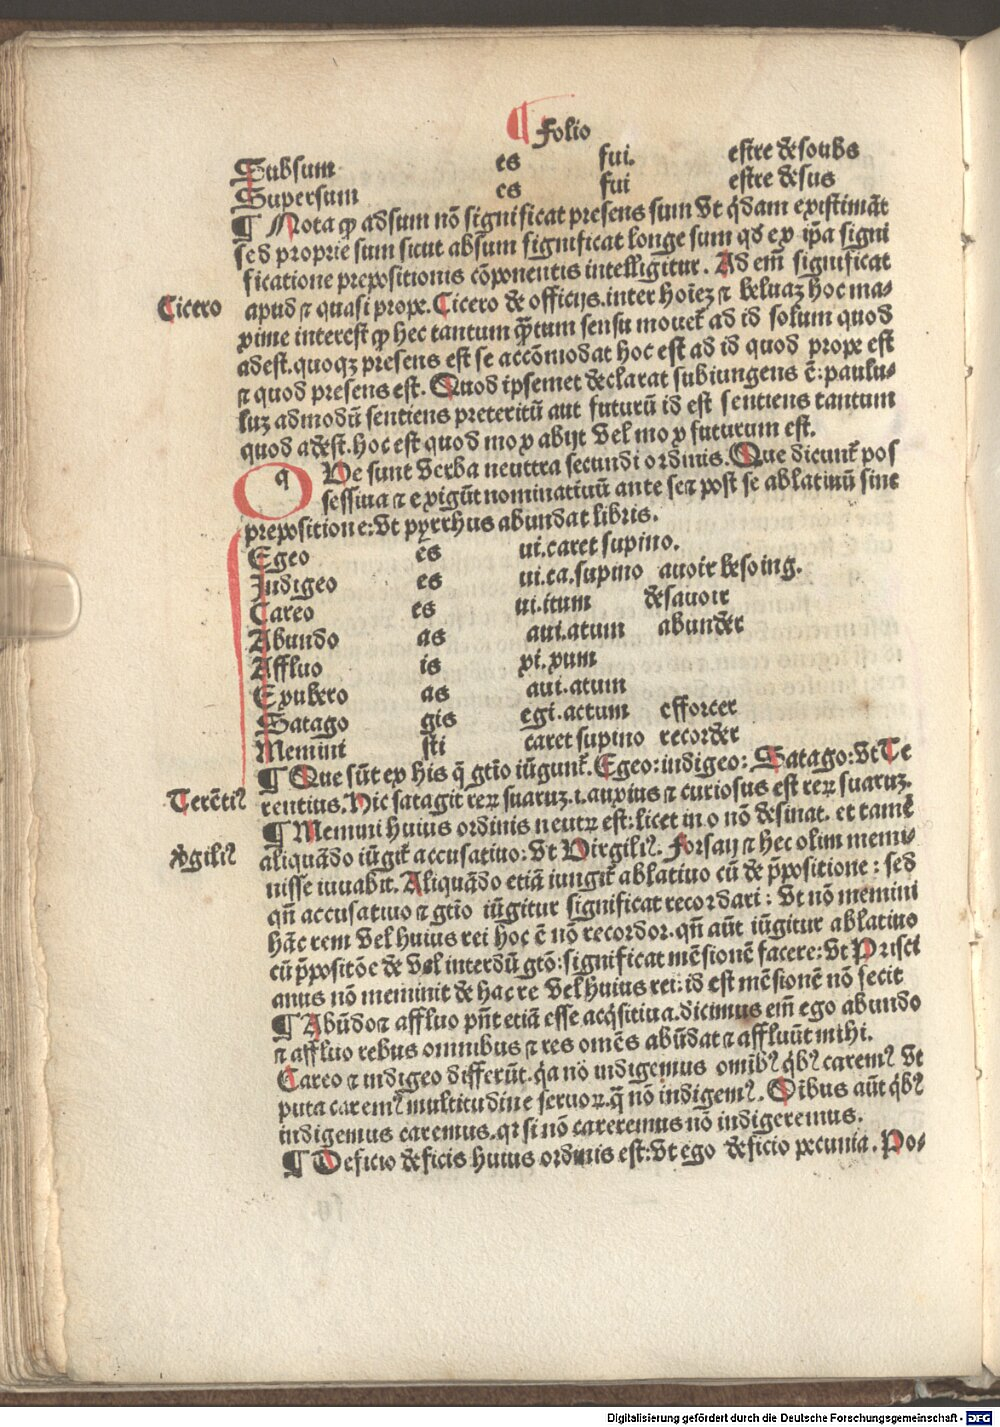 ¶ Folio
Subsum es fui. estre desoubs
Supersum es fui estre desus
¶ Nota ꝙ adsum nō significat presens sum vt q̄dam existimāt
sed proprie sum sicut absum significat longe sum qd ex ip̄a signi
ficatione prepositionis cōponentis intelligitur. Ad em̄ significat
Cicero
apud ⁊ quasi prope. Cicero de officijs. inter hoīeꝫ ⁊ beluaꝫ hoc ma-
xime interest ꝙ hec tantum q̄ꝫtum sensu mouet᷑ ad id solum quod
adest. quoqꝫ presens est se accōmodat hoc est ad id quod prope est
⁊ quod presens est. Quod ipsemet declarat subiungens c̄: paulu-
luꝫ admodū sentiens preteritū aut futurū id est sentiens tantum
quod adest. hoc est quod mox abijt vel mox futurum est.
QVe sunt verba neuttra secundi ordinis. Que dicunt᷑ pos
sessiua ⁊ exigūt nominatiuū ante se⁊ post se ablatiuū sine
prepositione: vt pyrrhus abundat libris.
Egeo es ui. caret supino.
Indigeo es ui. ca. supino auoir besoing.
Careo es ui. itum desauoir
Abundo as aui. atum abunder
Affluo is xi. xum
Exubero as aui. atum
Satago gis egi. actum efforcer
Memini sti caret supino recorder
¶ Que sūt ex his q̄ gtīo iūgunt᷑. Egeo: indigeo: Satago: vt Te
Terētiꝰ
rentius. Hic satagit reꝝ suaruꝫ .i. anxius ⁊ curiosus est reꝝ suaruꝫ.
¶ Memini huius ordinis neutꝝ est: licet in o nō desinat. et tamē
v̄giliꝰ
aliquādo iūgit᷑ accusatiuo: vt Virgiliꝰ. Forsan ⁊ hec olim memi-
nisse iuuabit. Aliquādo etiā iungit᷑ ablatiuo cū de p̄positione: sed
qn̄ accusatiuo ⁊ gtīo iūgitur significat recordari: vt nō memini
hāc rem vel huius rei hoc ē nō recordor. qn̄ aūt iūgitur ablatiuo
cū p̄positōe de vel interdū gtō: significat mēsionē facere: vt Prisci
anus nō meminit de hac re vel huius rei: id est mēsionē nō fecit
¶ Abūdo⁊ affluo pn̄t etiā esse acq̄sitiua. dicimus em̄ ego abundo
⁊ affluo rebus omnibus ⁊ res omēs abūdat ⁊ affluūt mihi.
Careo ⁊ indigeo differūt. q̄a nō indigemus omībꝰ q̄bꝰ caremꝰ vt
puta caremꝰ multitudine seruoꝝ. q̄ nō indigemꝰ. Oībus aūt q̄bꝰ
indigemus caremus. qꝛ si nō careremus nō indigeremus.
¶ Deficio deficis huius ordinis est: vt ego deficio pecunia. Po-
Digitalisierung gefördert durch die Deutsche Forschungsgemeinschaft - DFG